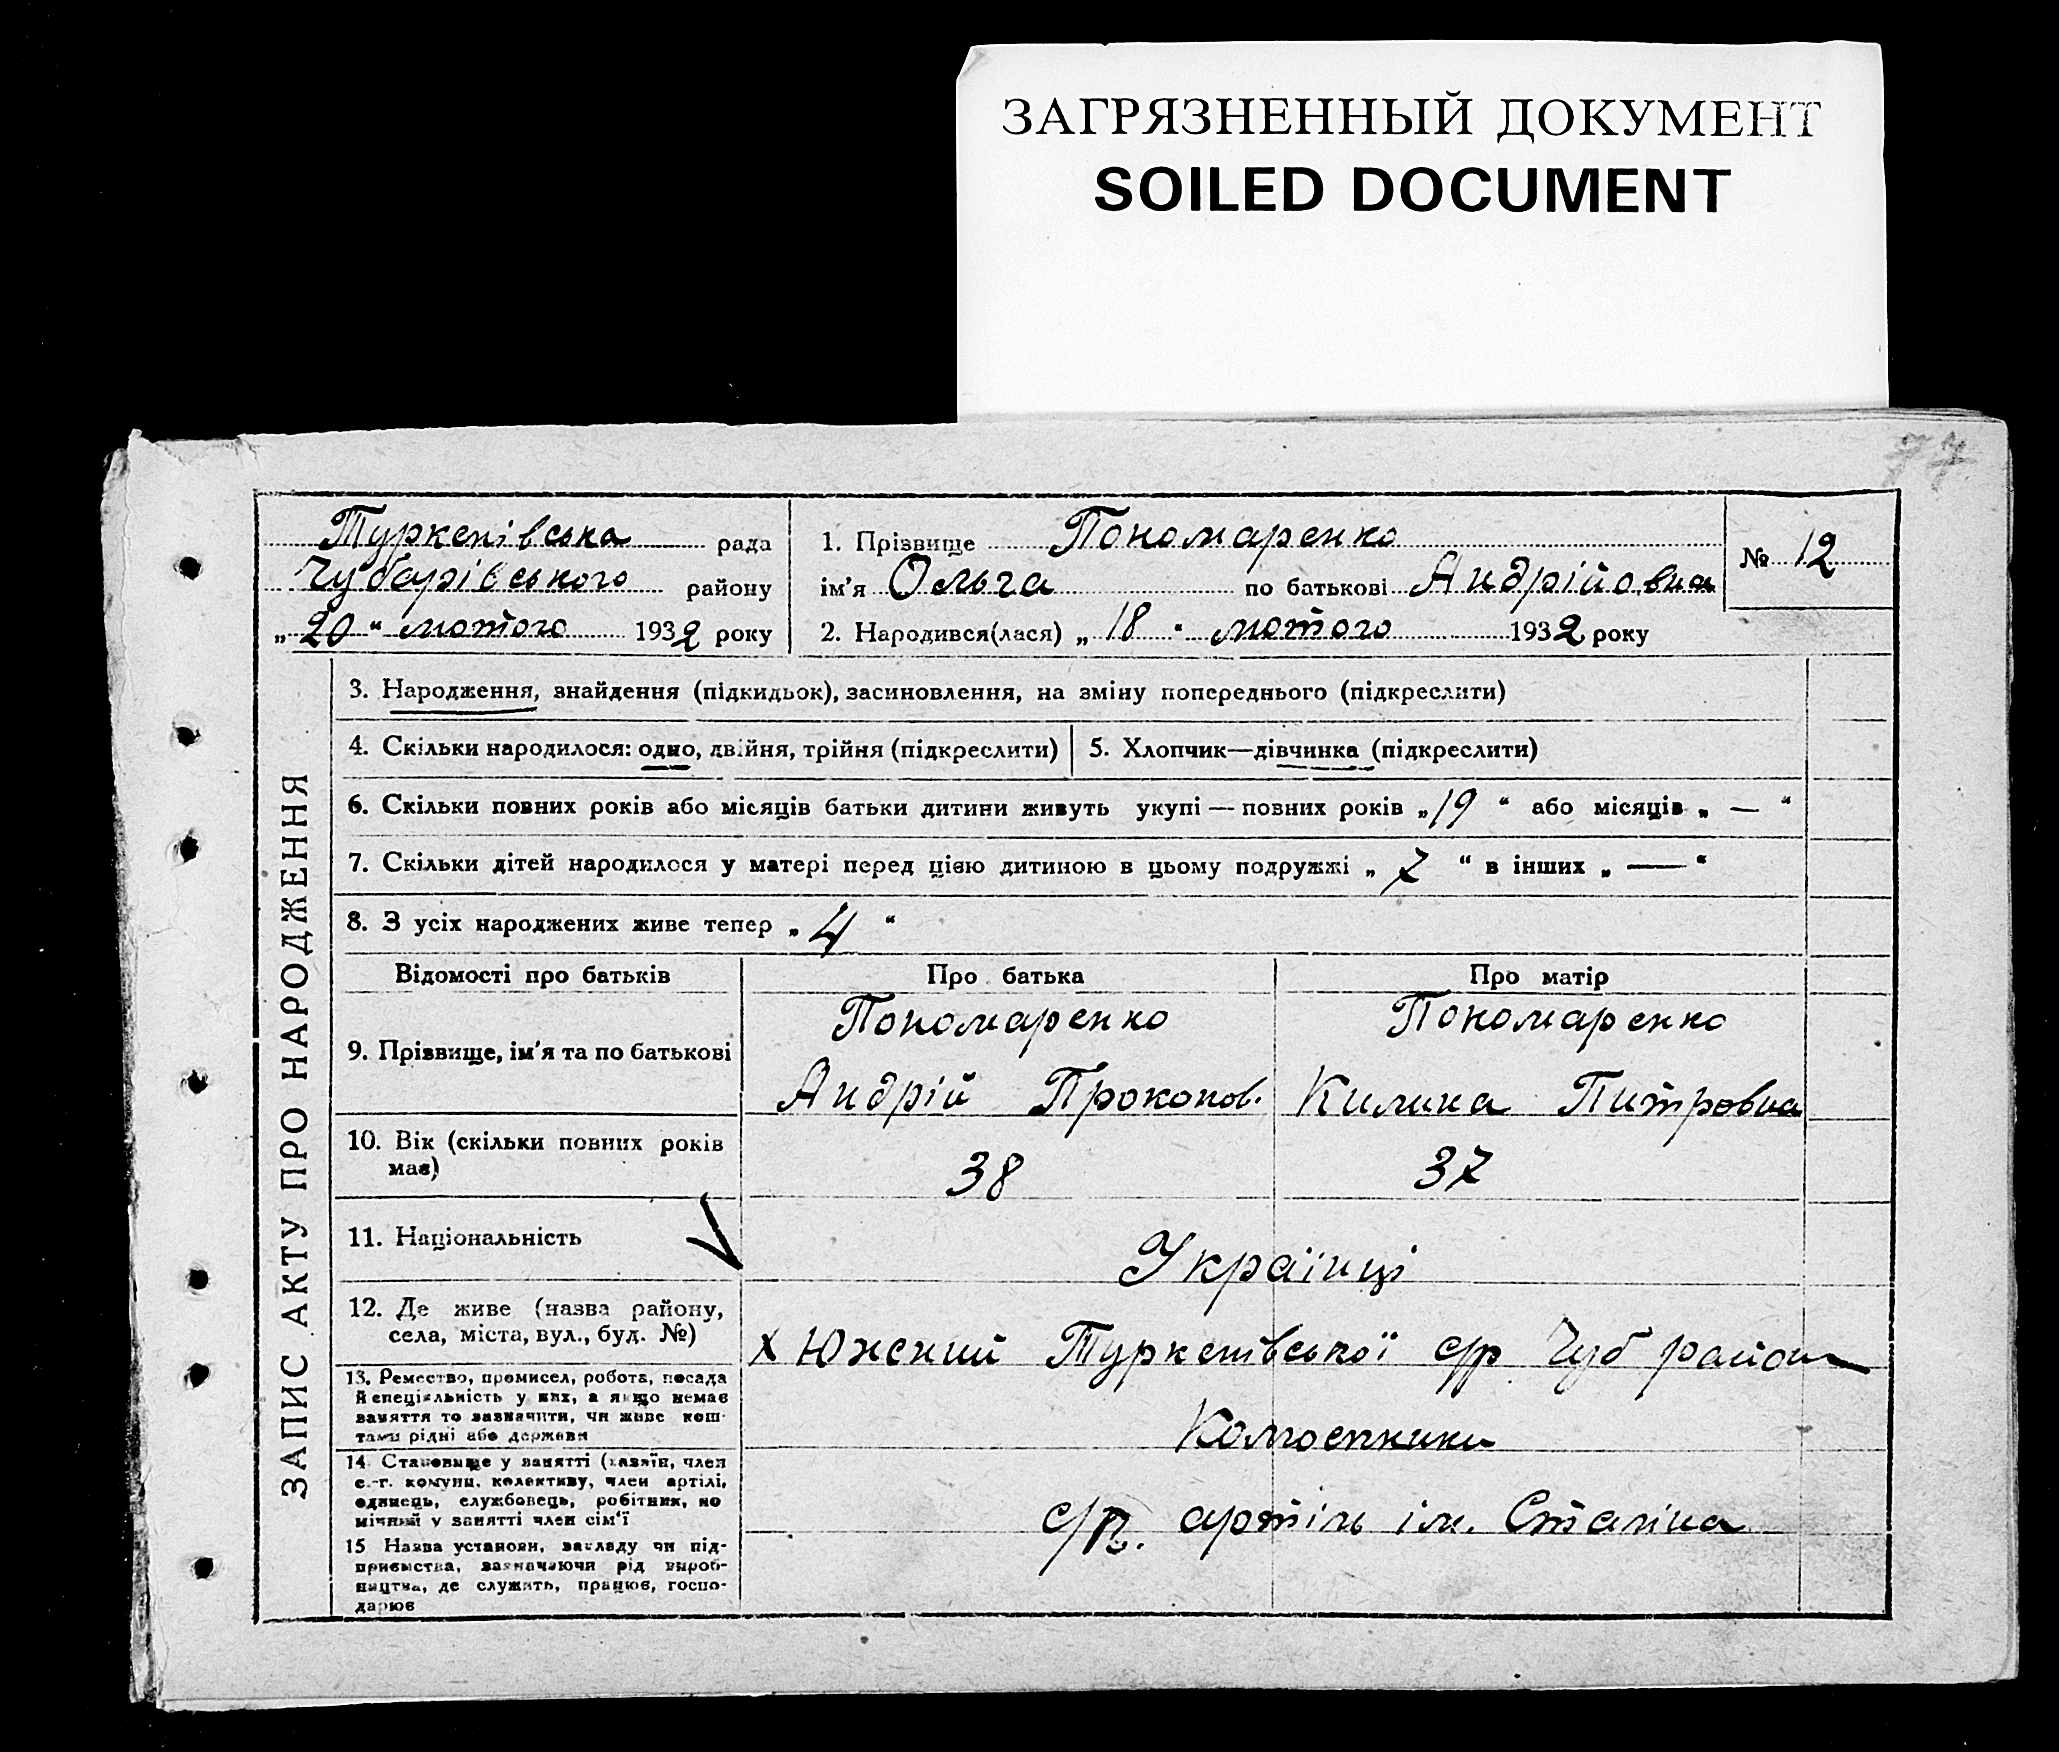 ЗАГРЯЗНЕННЫЙ ДОКУМЕНТ
SOILED DOCUMENT
77
Туркенівська рада
Чубарівського району
„ 20 “ лютого 1932 року
1. Прізвище Пономаренко
ім'я Ольга по батькові Андрійовна
2. Народився(лася) „ 18 “ лютого 1932 року
№ 12
ЗАПИС АКТУ ПРО НАРОДЖЕННЯ
3. Народження, знайдення (підкидьок), засиновлення, на зміну попереднього (підкреслити)
4. Скільки народилося: одно, двійня, трійня (підкреслити)
5. Хлопчик—дівчинка (підкреслити)
6. Скільки повних років або місяців батьки дитини живуть укупі — повних років „ 19 “ або місяців „ — “
7. Скільки дітей народилося у матері перед цією дитиною в цьому подружжі „ 7 “ в інших „ — “
8. З усіх народжених живе тепер „ 4 “
Відомості про батьків
Про батька
Про матір
9. Прізвище, ім'я та по батькові
Пономаренко
Андрій Прокопов.
Пономаренко
Килина Питровна
10. Вік (скільки повних років
має)
38
37
11. Національність
Українці
12. Де живе (назва району,
села, міста, вул., буд. №)
х Южний Туркенівської с/р Чуб район
13. Ремество, промисел, робота, посада
й спеціяльність у них, а якщо немає
заняття то зазначити, чи живе кош-
тами рідні або держави
Колгоспники
14 Становище у занятті (хазяїн, член
с.-г. комуни, колективу, член артілі,
одинець, службовець, робітник, по
мічний у занятті член сім'ї
с/г. артіль ім. Сталіна
15 Назва установи, закладу чи під-
приємства, зазначаючи рід вироб-
ництва, де служить, працює, госпо-
дарює